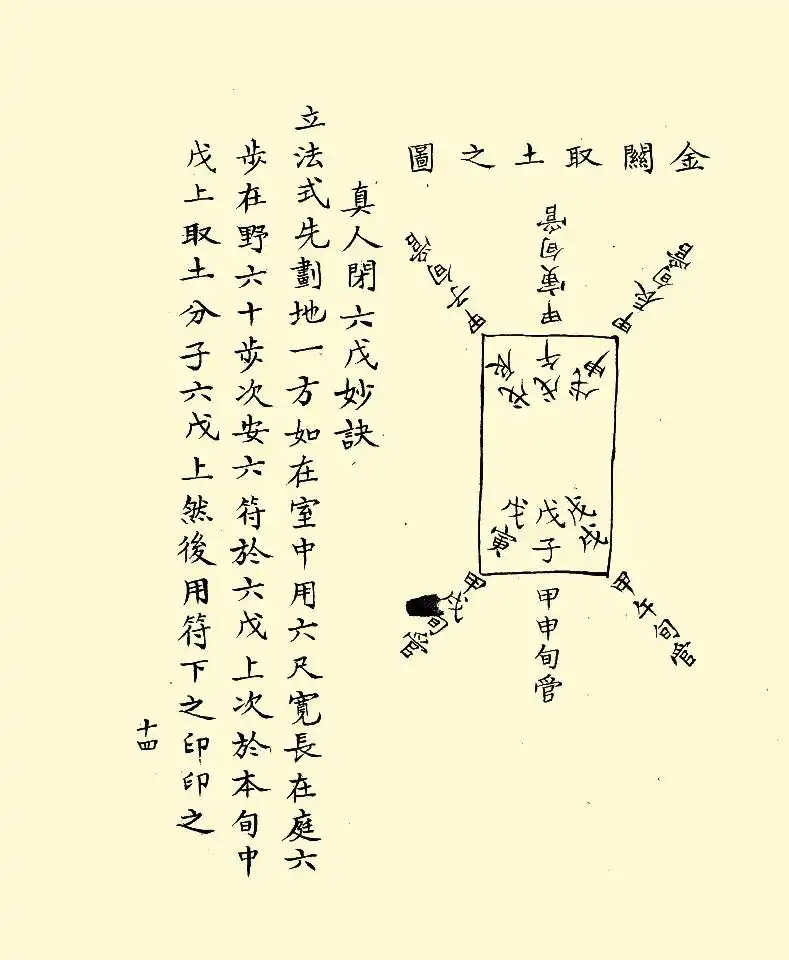 金關取土之圖
甲辰旬管
甲寅旬管
甲子旬管
戊申
戊午
戊辰
戊戌
戊子
戊寅
甲午旬管
甲申旬管
甲戌旬管
真人閉六戊妙訣
立法式先劃地一方如在室中用六尺寬長在庭六
步在野六十步次安六符於六戊上次於本旬中
戊上取土分子六戊上然後用符下之印印之
十四